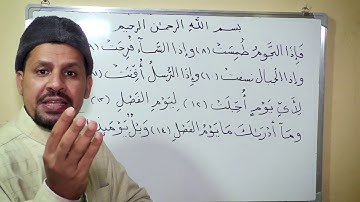 بسم اللّه الرحمٰن الرحيم
فَإِذَا النُّجُومُ طُمِسَتْ (٨) وَإِذَا السَّمَآءُ فُرِجَتْ (٩)
وَإِذَا الْجِبَالُ نُسِفَتْ (١٠) وَإِذَا الرُّسُلُ أُقِّتَتْ
لِأَىِّ يَوْمٍ أُجِّلَتْ (١٢) لِيَوْمِ الْفَصْلِ (١٣)
وَمَآ أَدْرَىٰكَ مَا يَوْمُ الْفَصْلِ (١٤) وَيْلٌ يَوْمَئِذٍ